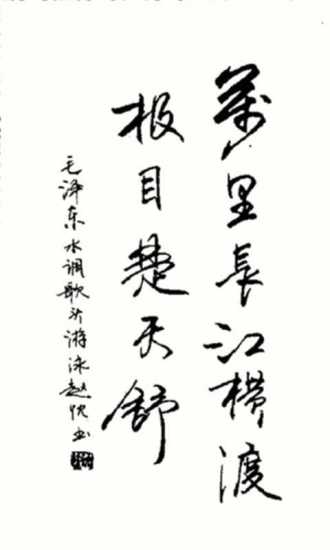 萬里長江横渡
极目楚天舒
毛泽东水调歌头游泳趙忱书